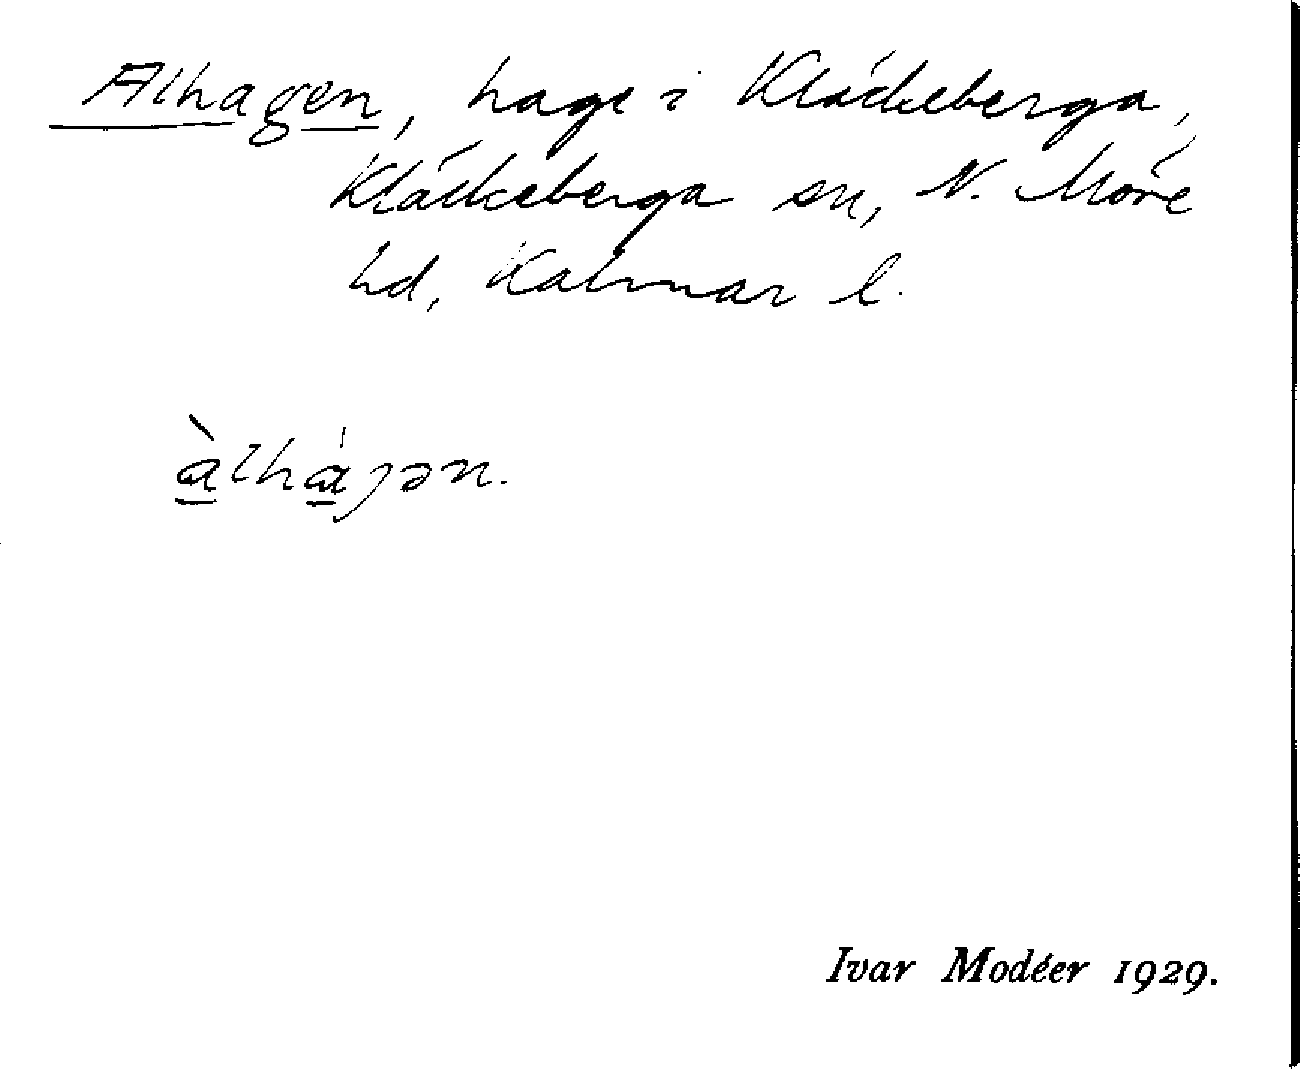 Alhagen, hage i Kläckeberga,
Kläckeberga sn, N. Möre
hd, Kalmar l.
àlhájən.
Ivar Modéer 1929.